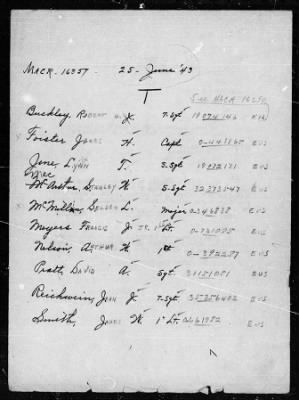 MACR. 16357 25 - June '43
T
See MACR 16250
Buckley, Robert J. T. Sgt 19074146 EUS
Foister James H. Capt 0-443865 EUS
June, Lynn T. S. Sgt EUS
Mac
McArthur, Stanley W S. Sgt 32373147 EUS
McMillan, L. Major 0346838 EUS
Meyers Francis J. Jr. 1st Lt. 0-731095 EUS
Nelson, Arthur H 1st 0-392287 EUS
Pratt, David A. Sgt 31151081 EUS
Reichwein, John J. T. Sgt EUS
Smith, James W 1st Lt. EUS